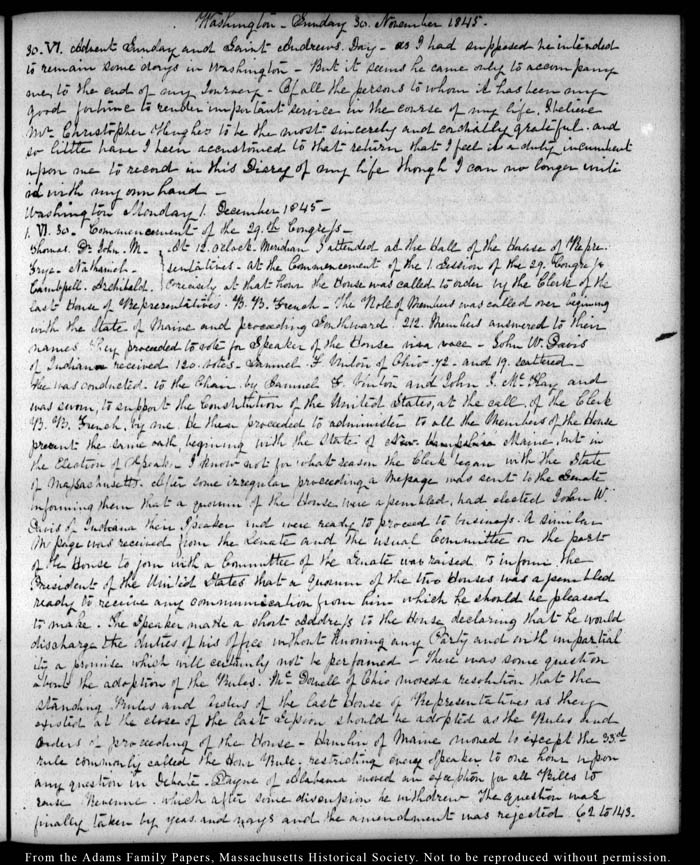 Washington - Sunday 30. November 1845 -
30. VI. Advent Sunday and Saint Andrews. Day - as I had supposed he intended
to remain some days in Washington - But it seems he came only to accompany
me, to the end of my Journey - Of all the persons to whom it has been my
good fortune to render important service in the course of my life, I believe
Mr. Christopher Hughes to be the most sincerely and cordially grateful. and
so little have I been accustomed to that return that I feel it a duty incumbent
upon me to record in this Diary of my life though I can no longer write
it with my own hand -
Washington Monday 1. December 1845 -
1. VI. 30. Commencement of the 29.th Congress -
Thomas. Dr. John. M. - At 12. oclock. Meridian I attended at the Hall of the House of Repre-
Frye - Nathaniel - sentatives - at the Commencement of the 1. Session of the 29. Congress
Campbell. Archibald. Precisely at that hour the House was called to order by the Clerk of the
last House of Representatives. B. B. French - The Role of Members was called over begining
with the State of Maine and proceeding Southward. 212. Members answered to their
names. They proceeded to vote for Speaker of the House viva voce - John W. Davis
of Indiana received 120. votes. Samuel. F. Vinton of Ohio 72 - and 19. scattered -
He was conducted to the Chair by Samuel F. Vinton and John J. Mc. Kay and
was sworn, to support the Constitution of the United States, at the call of the Clerk
B. B. French, by me. He then proceeded to administer to all the Members of the House
present the same oath, begining with the State of New Hampshire Maine, but in
the Election of Speaker I know not for what reason the Clerk began with the State
of Massachusetts. After some irregular proceeding a Message was sent to the Senate
informing them that a quorum of the House were assembled, had elected John W.
Davis of Indiana their Speaker and were ready to proceed to business. A similar
Message was received from the Senate and the usual Committee on the part
of the House to join with a Committee of the Senate was raised to inform the
President of the United States that a Quorum of the two Houses was assembled
ready to receive any communication from him which he should be pleased
to make. The Speaker made a short Address to the House declaring that he would
discharge the duties of his office without knowing any Party and with impartial
ity a promise which will certainly not be performed - There was some question
about the adoption of the Rules. Mc. Dowell of Ohio moved a resolution that the
standing Rules and orders of the last House of Representatives as they
existed at the close of the last Session should be adopted as the Rules and
Orders of proceeding of the House - Hamlin of Maine moved to except the 33.d
rule commonly called the Hour Rule. restricting every Speaker to one hour upon
any question in Debate. Payne of Alabama moved an exception for all Bills to
raise Revenue. which after some discussion he withdrew The question was
finally taken by yeas. and nays and the amendment was rejected 62 to 143.
From the Adams Family Papers, Massachusetts Historical Society. Not to be reproduced without permission.